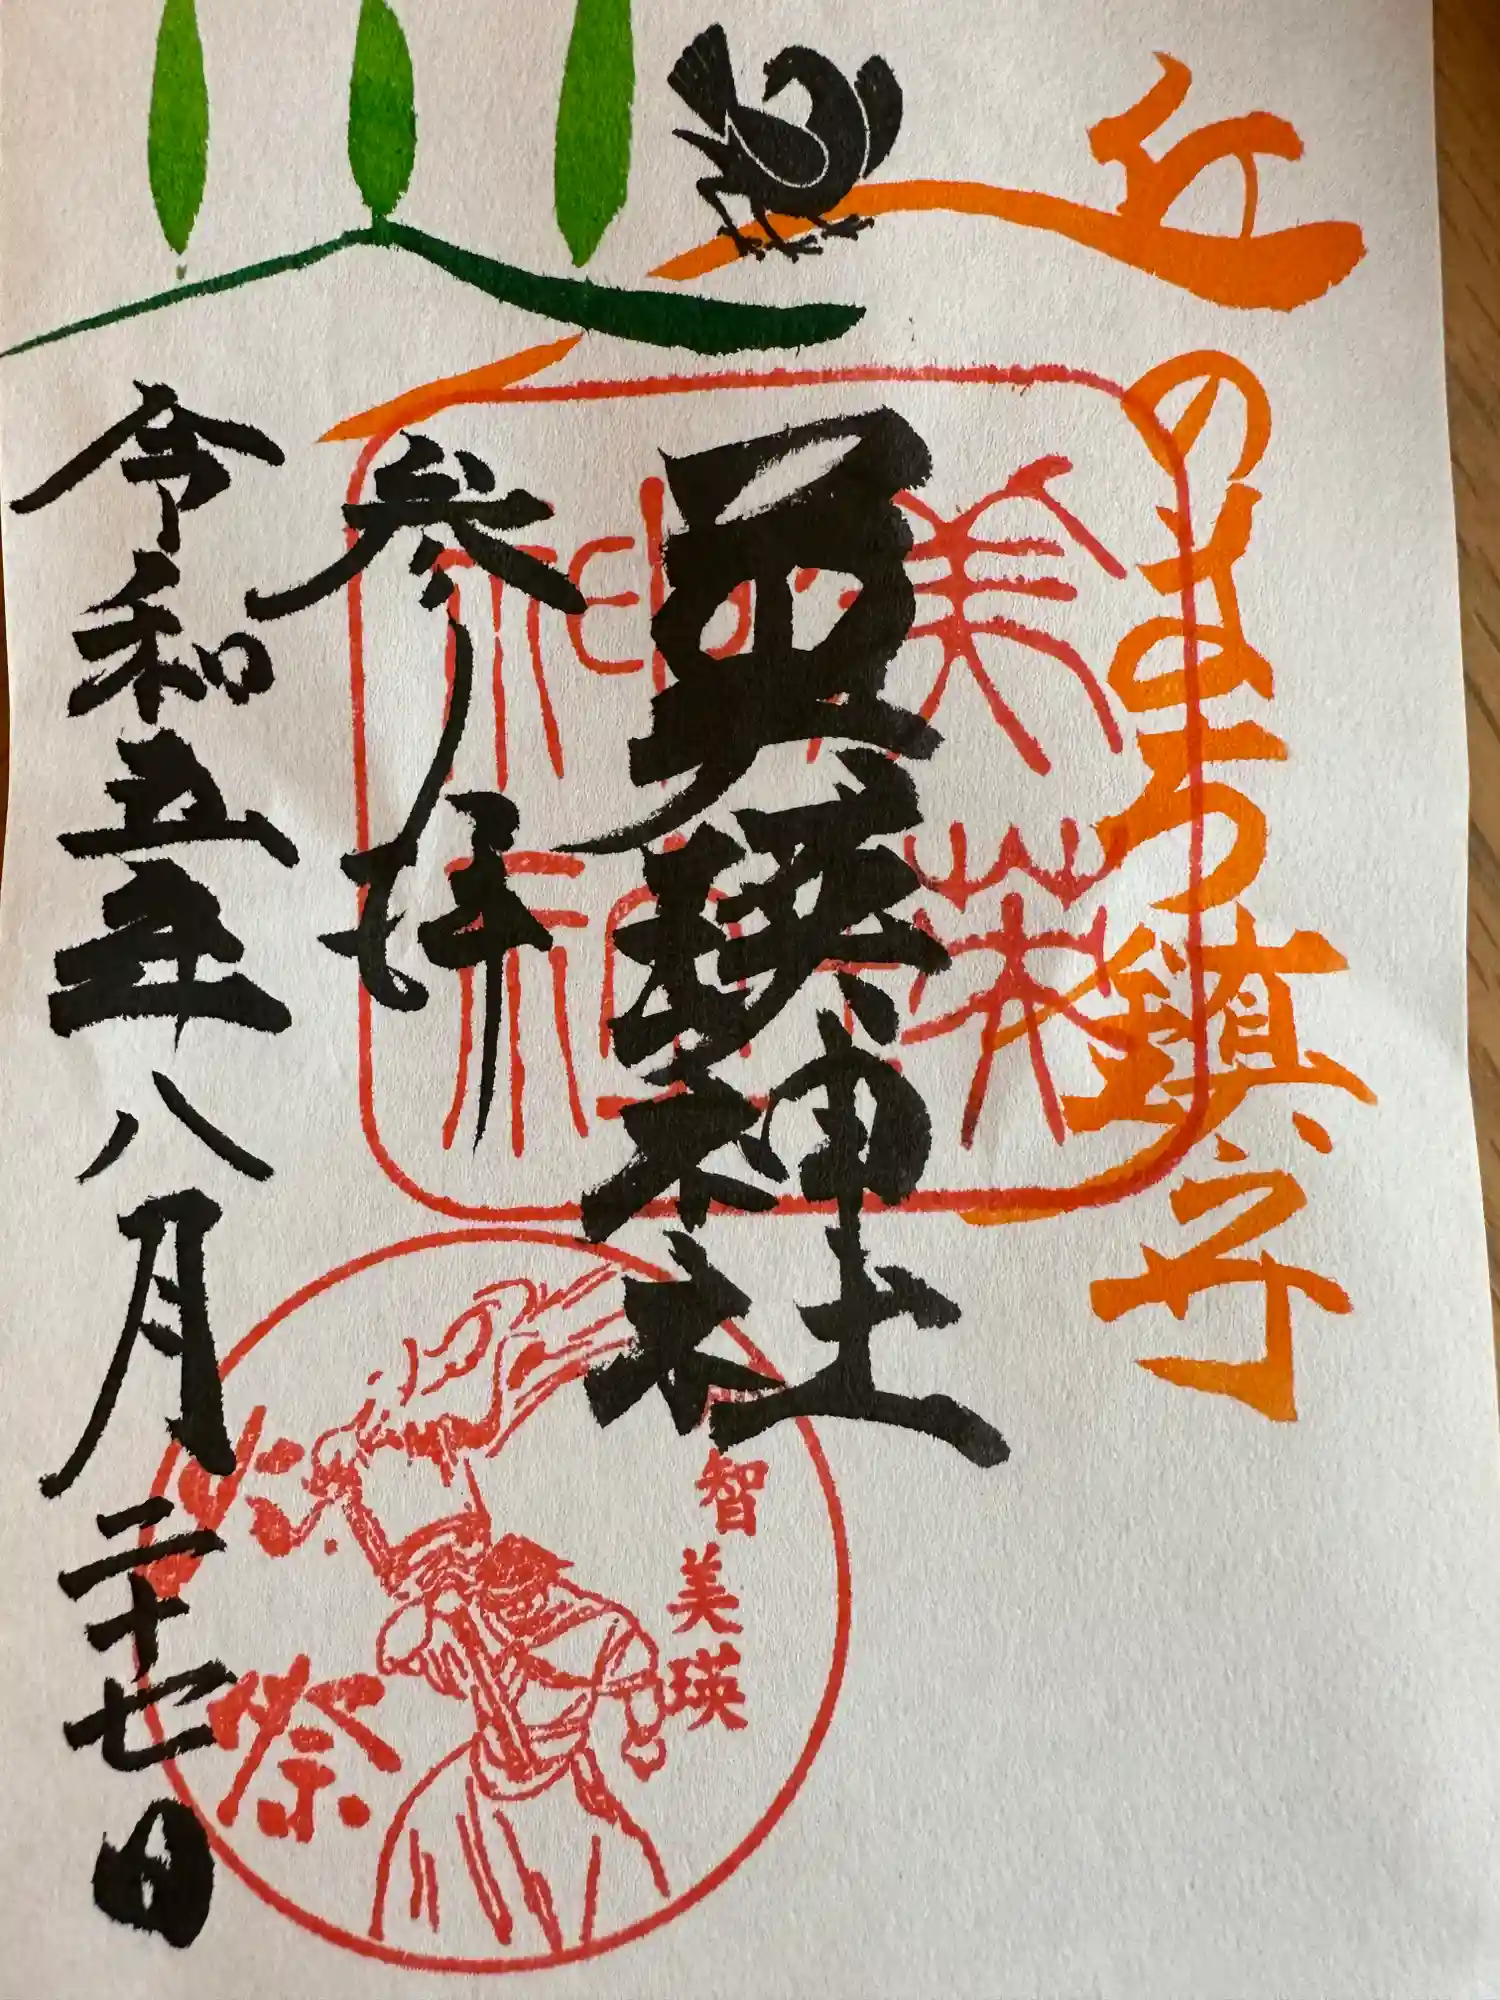 丘のまち鎮守
美瑛神社
参拝
令和五年八月二十七日
美瑛神社
那智美瑛
火祭